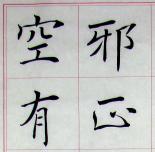 邪正
空有